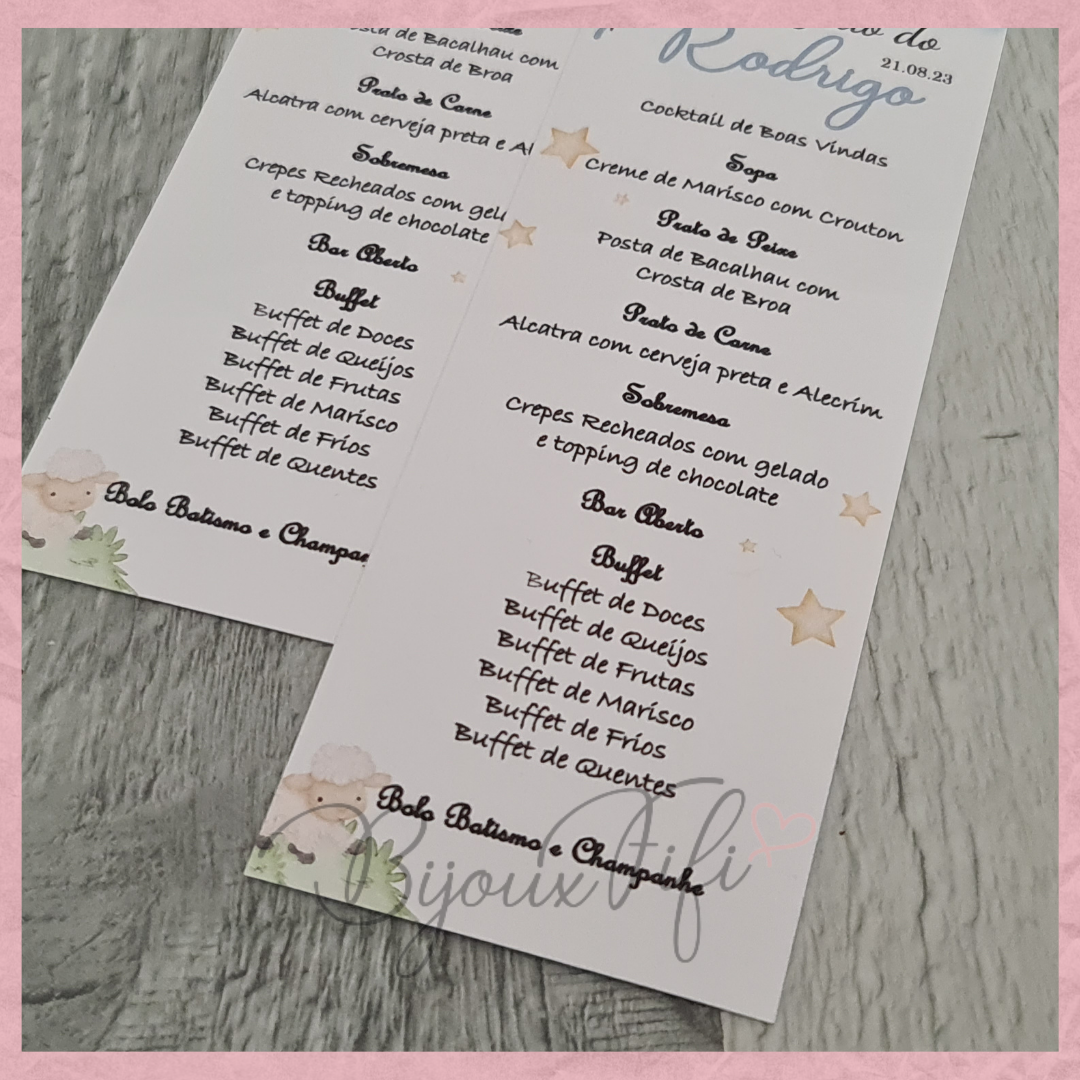 Posta de Bacalhau com
Crosta de Broa
Prato de Carne
Alcatra com cerveja preta e Al
Sobremesa
Crepes Recheados com gel
e topping de chocolate
Bar Aberto
Buffet
Buffet de Doces
Buffet de Queijos
Buffet de Frutas
Buffet de Marisco
Buffet de Frios
Buffet de Quentes
Bolo Batismo e Champan
do
Rodrigo
21.08.23
Cocktail de Boas Vindas
Sopa
Creme de Marisco com Crouton
Prato de Peixe
Posta de Bacalhau com
Crosta de Broa
Prato de Carne
Alcatra com cerveja preta e Alecrim
Sobremesa
Crepes Recheados com gelado
e topping de chocolate
Bar Aberto
Buffet
Buffet de Doces
Buffet de Queijos
Buffet de Frutas
Buffet de Marisco
Buffet de Frios
Buffet de Quentes
Bolo Batismo e Champanhe
BijouxTifi